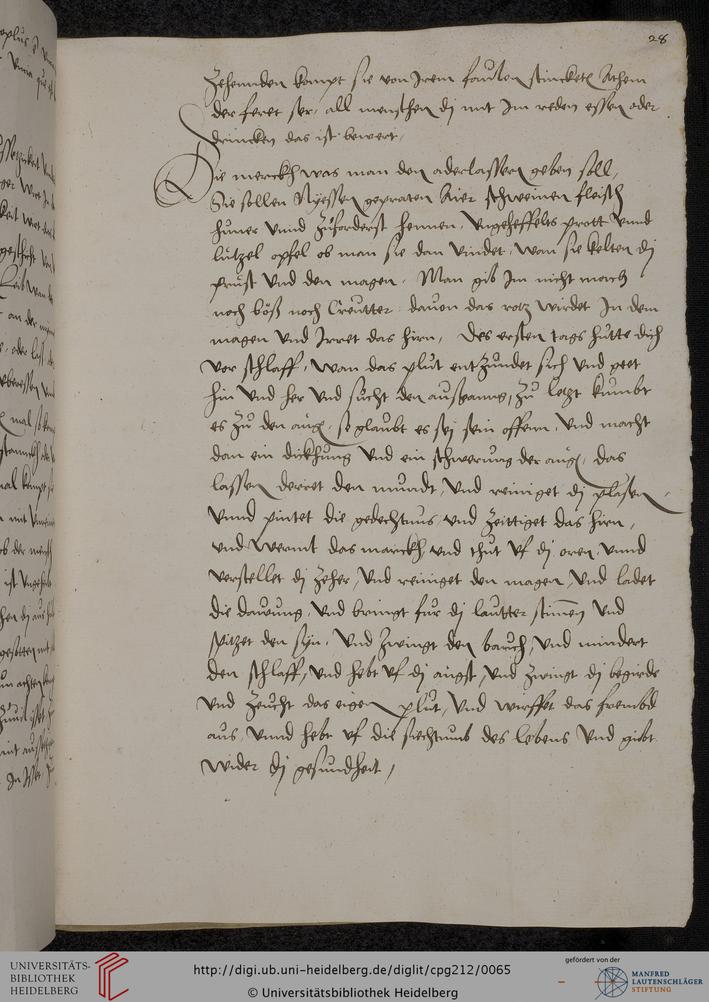 28
Zehennden kompt sie von Irem faulen stincketn Athem
der feret ser, all menschen dj mit Im reden essen oder
drincken das ist bewert,
Die merckh was man den aderlassern geben soll,
Sie sollen Nyessen gepraten Aier schweinen fleisch
hüner vnnd zuforderst hennen, Vngeheffelts prott vnnd
lutzel opfel ob man sie dan vindet, wan sie kelten dj
prust vnd den magen, Man gib Im nicht march
noch köß noch Creutter dauon das rotz wirdet In dem
magen vnd Irret das hirn, des ersten tags hütte dich
vor schlaff, wan das plut entzundet sich vnd geet
hin vnd her vnd sucht den ausganng, zu letzt kumbt
es zu den augn, so glaubt es sej sein offenn, vnd macht
dan ein dickhung vnd ein schwerung der augn, das
lassen derret den mundt, vnd reiniget dj plasen,
vnnd pintet die gedechtnus, vnd zeittiget das hirn,
vnd Wermt das marckh, vnd thut vf dj oren, vnnd
verstellet dj zeher, vnd reiniget den magen, vnd ladet
die dawung, vnd bringt fur dj lautter stimen vnd
spitzet den syn, vnd zwingt den bauch, vnd mindert
den schlaff, vnd hebt vf dj angst, vnd zwingt dj begirde
vnd zeucht das eigen plut, vnd wirffet das frembd
aus, vnnd hebt vf die siechtumb des lebens vnd gibt
wider dj gesundheit,
UNIVERSITÄTS-
BIBLIOTHEK
HEIDELBERG
http://digi.ub.uni-heidelberg.de/diglit/cpg212/0065
© Universitätsbibliothek Heidelberg
gefördert von der
MANFRED
LAUTENSCHLÄGER
STIFTUNG